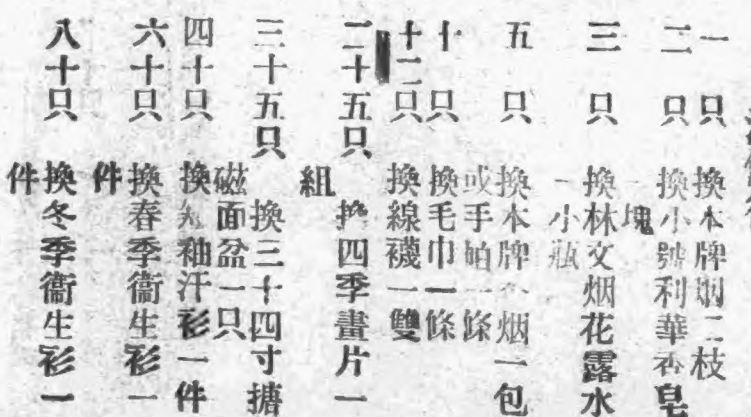 一只換本牌烟二枝
二只換小號利華香皂
一塊
三只換林文烟花露水
一小瓶
五只換本牌烟一包
或手帕一條
十只換毛巾一條
十二只換線襪一雙
二十五只換四季畫片一
組
三十五只換三十四寸搪
磁面盆一只
四十只換短袖汗衫一件
六十只換春季衞生衫一
件
八十只換冬季衞生衫一
件